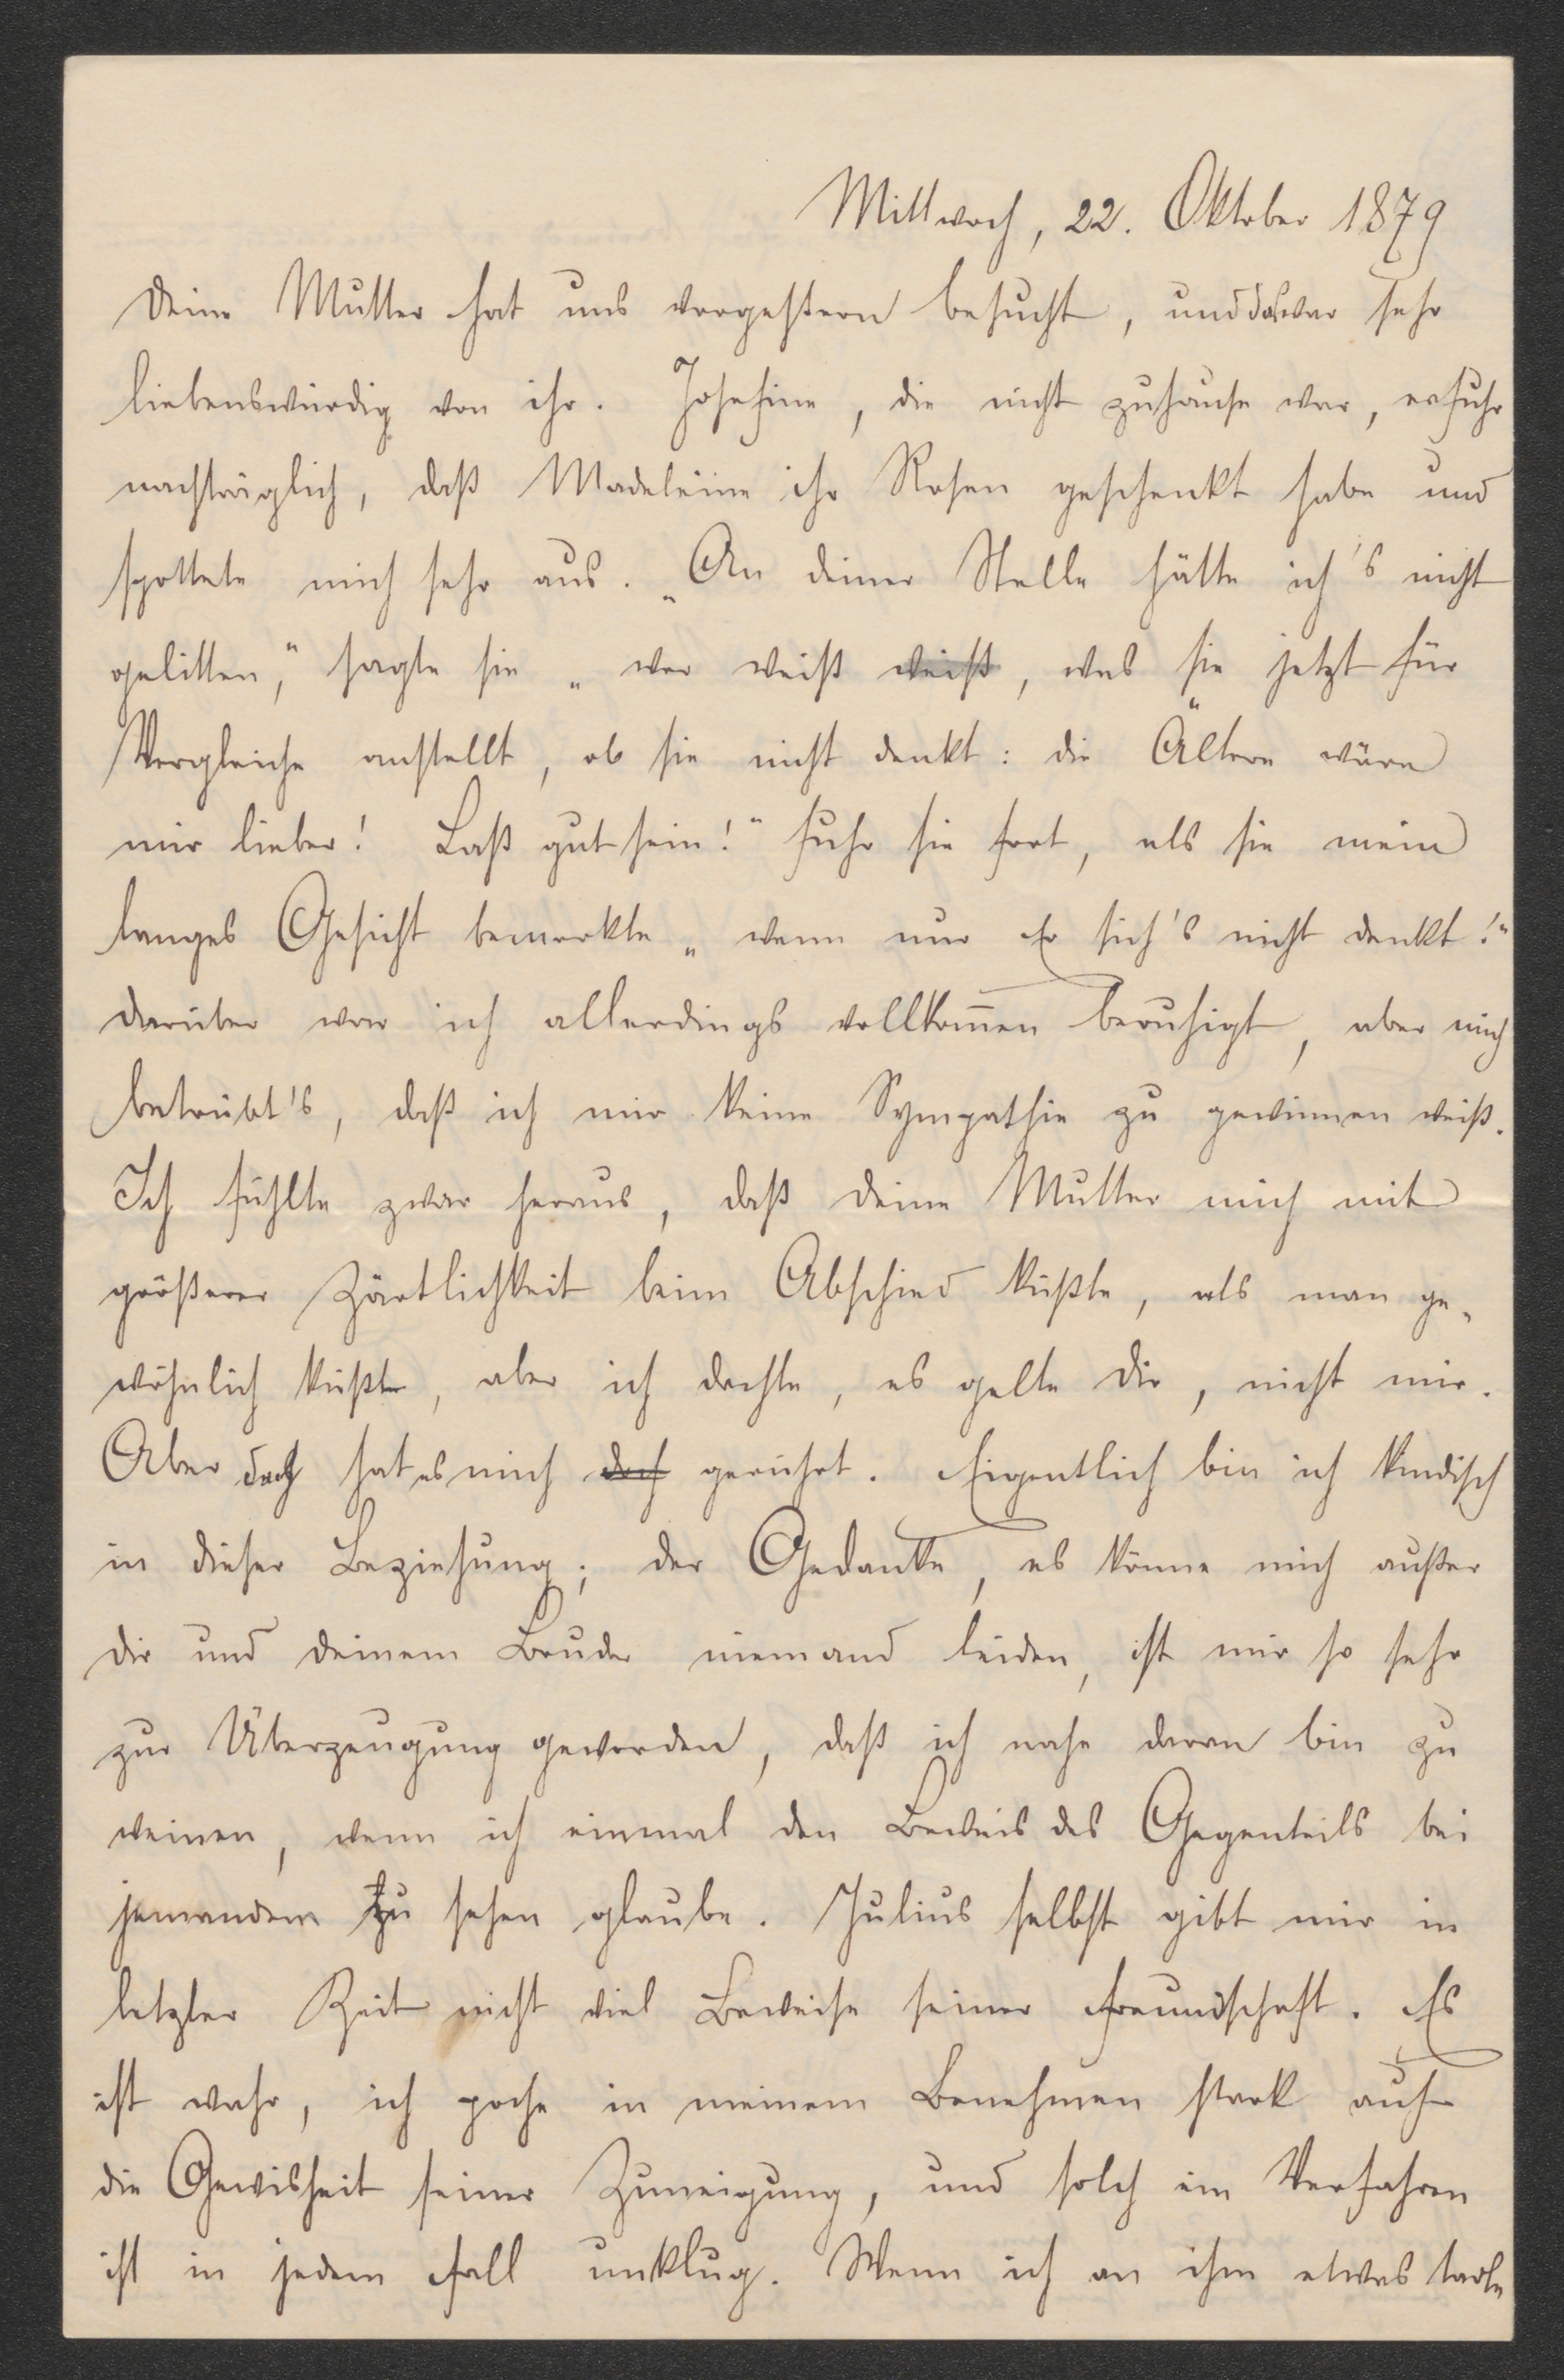 Mittwoch, 22. Oktober 1879
Deine Mutter hat uns vorgestern besucht, und das war sehr
liebenswürdig von ihr. Josefine, die nicht zuhause war, erfuhr
nachträglich, daß Madeleine ihr Rosen geschenkt habe und
spottete mich sehr aus. „An deiner Stelle hätte ich's nicht
gelitten," sagte sie „wer weiß weiß, was sie jetzt für
Vergleiche anstellt, ob sie nicht denkt: die Ältere wäre
mir lieber! Laß gut sein!" fuhr sie fort, als sie mein
langes Gesicht bemerkte „wenn nur Er sich's nicht denkt!"
Darüber war ich allerdings vollkom̅en beruhigt, aber mich
betrübt's, daß ich mir keine Sympathie zu gewinnen weiß.
Ich fühlte zwar heraus, daß Deine Mutter mich mit
größerer Zärtlichkeit beim Abschied küßte, als man ge-
wöhnlich küßte, aber ich dachte, es gelte Dir, nicht mir.
Aber doch hat es mich doch gerührt. Eigentlich bin ich kindisch
in dieser Beziehung; der Gedanke, es könne mich außer
Dir und Deinem Bruder niemand leiden, ist mir so sehr
zur Überzeugung geworden, daß ich nahe daran bin zu
weinen, wenn ich einmal den Beweis des Gegenteils bei
jemandem zu sehen glaube. Julius selbst gibt mir in
letzter Zeit nicht viel Beweise seiner Freundschaft. Es
ist wahr, ich poche in meinem Benehmen stark auf
die Gewisheit seiner Zuneigung, und solch ein Verfahren
ist in jedem Fall unklug. Wenn ich an ihm etwas tadle